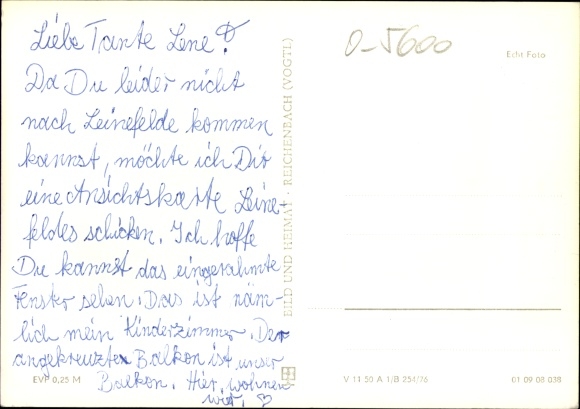 Liebe Tante Lene!
Da Du leider nicht
nach Leinefelde kommen
kannst, möchte ich Dir
eine Ansichtskarte Leine-
feldes schicken. Ich hoffe
Du kannst das eingerahmte
Fenster sehen. Das ist näm-
lich mein Kinderzimmer. Der
angekreuzte Balkon ist unser
Balkon. Hier wohnen
wir. ♡
EVP 0,25 M
BILD UND HEIMAT · REICHENBACH (VOGTL)
O-5600
Echt Foto
V 11 50 A 1/B 254/76
01 09 08 038